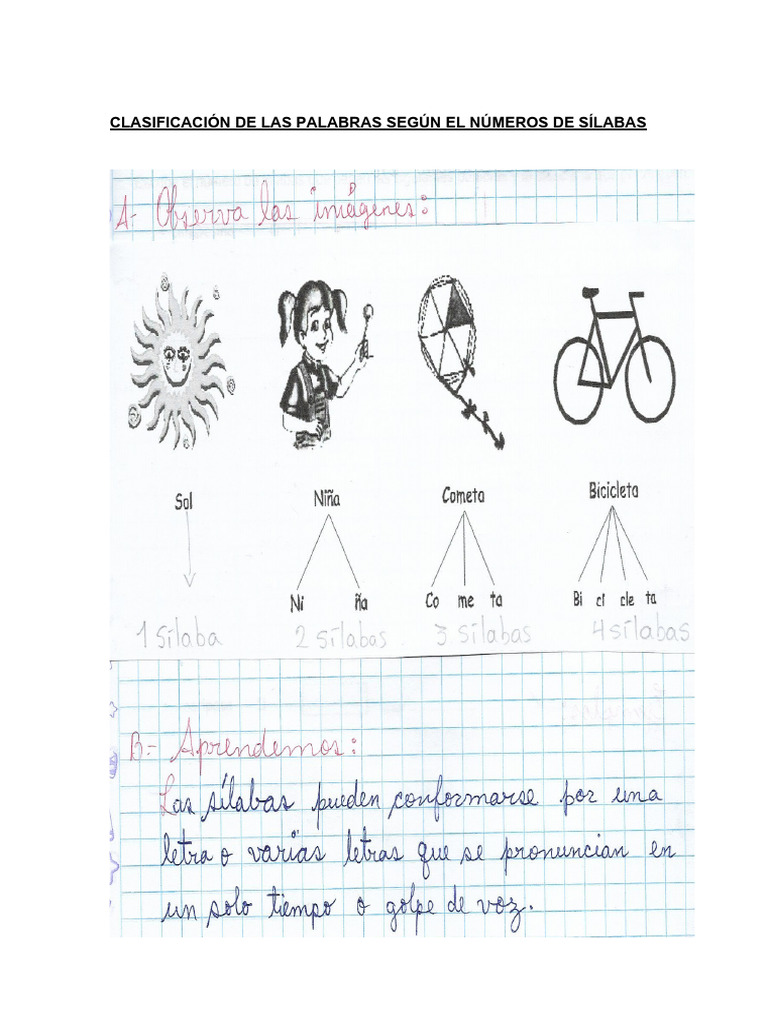 CLASIFICACIÓN DE LAS PALABRAS SEGÚN EL NÚMEROS DE SÍLABAS
A- Observa las imágenes:
Sol Niña Cometa Bicicleta
Ni ña Co me ta Bi ci cle ta
1 Sílaba 2 sílabas 3 sílabas 4 sílabas
B.- Aprendemos:
Las sílabas pueden conformarse por una
letra o varias letras que se pronuncian en
un solo tiempo o golpe de voz.